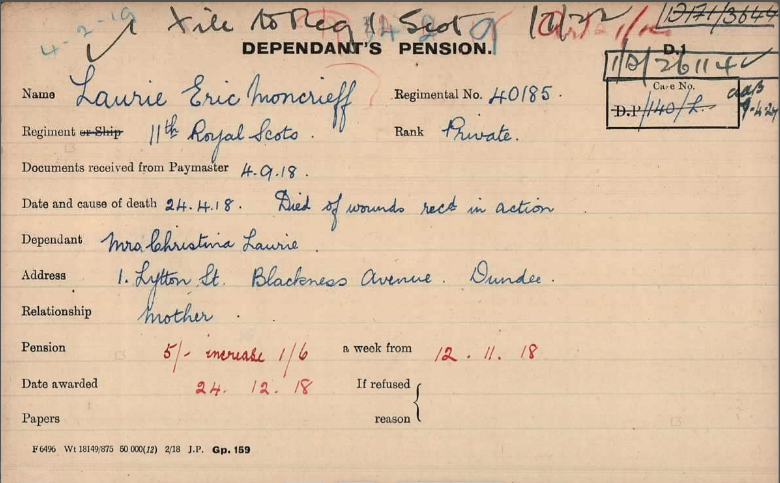 4-2-19 File to Reg 1 Scot 17/22 12171/3644
DEPENDANT'S PENSION.
D.1
1/D/26114
Name Laurie Eric Moncrieff Regimental No. 40185. Case No.
D.P/140/L.
9.4.24
Regiment or Ship 11th Royal Scots. Rank Private.
Documents received from Paymaster 4.9.18.
Date and cause of death 24.4.18. Died of wounds recd in action
Dependant Mrs Christina Laurie.
Address 1. Lytton St. Blackness Avenue. Dundee.
Relationship Mother.
Pension 5/- increase 1/6 a week from 12.11.18
Date awarded 24.12.18 If refused
Papers reason
F6496 Wt 18149/875 50 000(12) 2/18 J.P. Gp. 159